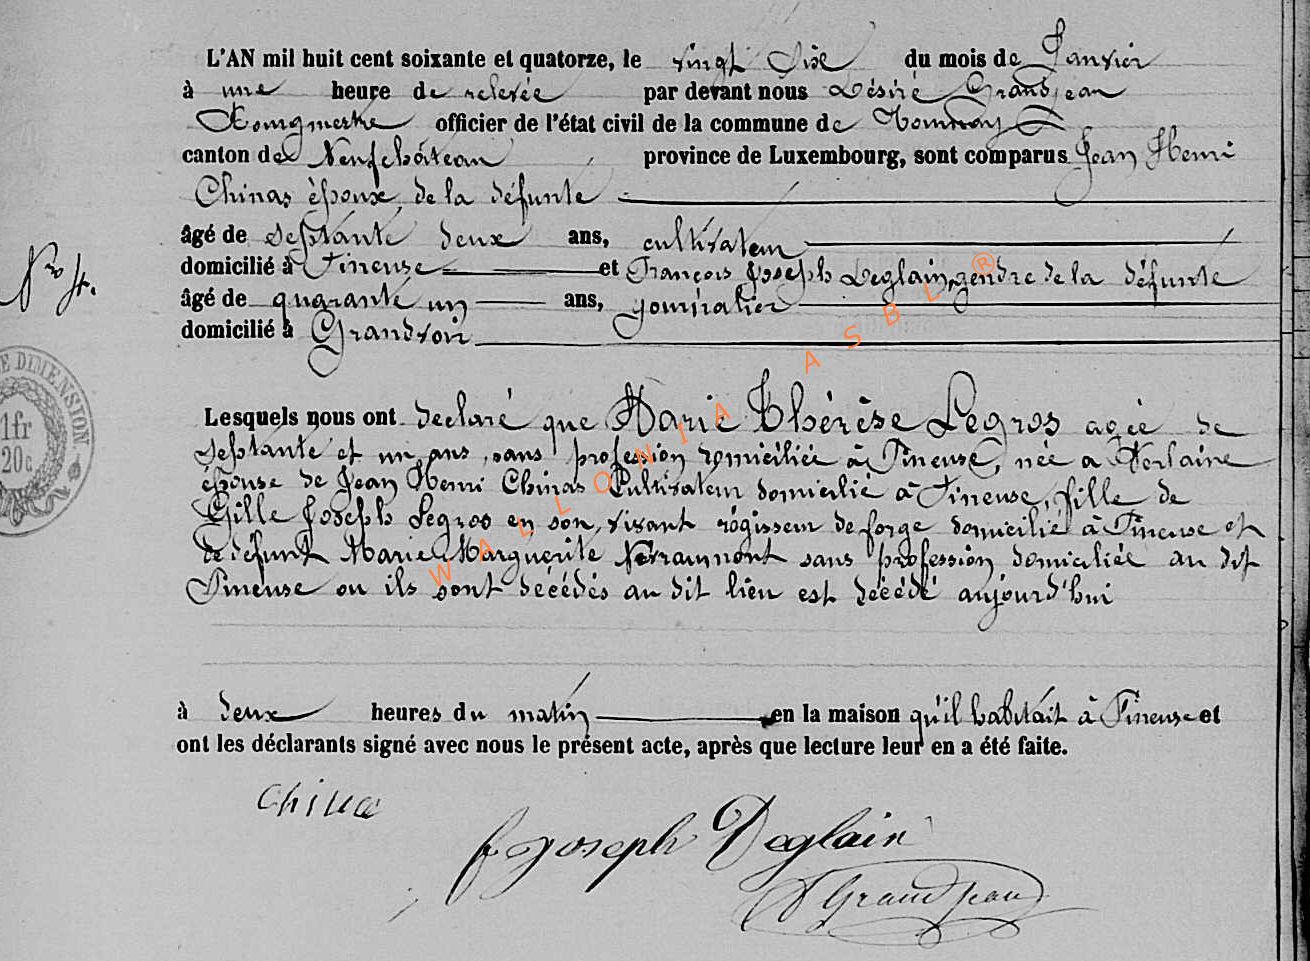 L'AN mil huit cent soixante et quatorze, le vingt Six du mois de Janvier
à une heure de relevée par devant nous Désiré Grandjean
Bourgmestre officier de l'état civil de la commune de Tournay
canton de Neufchâteau province de Luxembourg, sont comparus Jean Henri
Chinas époux de la défunte
âgé de septante deux ans, cultivateur
domicilié à Tineuse et François Joseph Deglain, gendre de la défunte
Nro 4.
âgé de quarante un ans, journalier
domicilié à Grandvoir
E DIMENSION
1fr
20c
Lesquels nous ont declaré que Marie Thérèse Legros agée de
septante et un ans, sans profession domiciliée à Tineuse, née a Verlaine
épouse de Jean Henri Chinas Cultivateur domicilié à Tineuse, fille de
Gille Joseph Legros en son vivant régisseur de forge domicilié à Tineuse et
de défunt Marie Marguerite sans profession domiciliée au dit
Tineuse ou ils sont décédés au dit lieu est décédé aujourd'hui
à deux heures du matin en la maison qu'il habitait à Tineuse et
ont les déclarants signé avec nous le présent acte, après que lecture leur en a été faite.
f Joseph Deglain
D Grandjean
WALLONIA ASBL ®